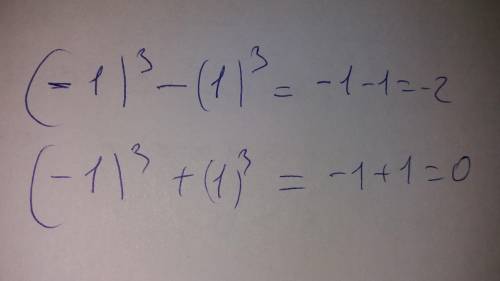 (-1)³-(1)³= -1-1=-2
(-1)³+(1)³ = -1+1=0